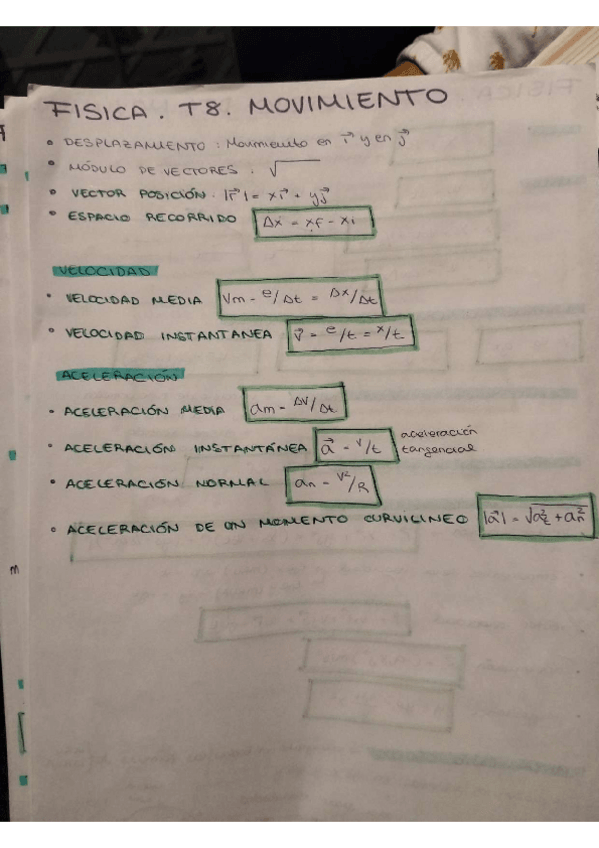 FISICA. T8. MOVIMIENTO
• DESPLAZAMIENTO: Movimiento en i⃗ y en j⃗
• MÓDULO DE VECTORES. √
• VECTOR POSICIÓN. |r⃗| = xi⃗ + yj⃗
• ESPACIO RECORRIDO Δx = xf - xi
VELOCIDAD
• VELOCIDAD MEDIA Vm = e/Δt = Δx/Δt
• VELOCIDAD INSTANTANEA v⃗ = e/t = x/t
ACELERACIÓN
• ACELERACIÓN MEDIA am = Δv/Δt
• ACELERACIÓN INSTANTÁNEA a⃗ = v/t aceleración tangencial
• ACELERACIÓN NORMAL an = v²/R
• ACELERACIÓN DE UN MOMENTO CURVILINEO |a⃗| = √(a²t + a²n)